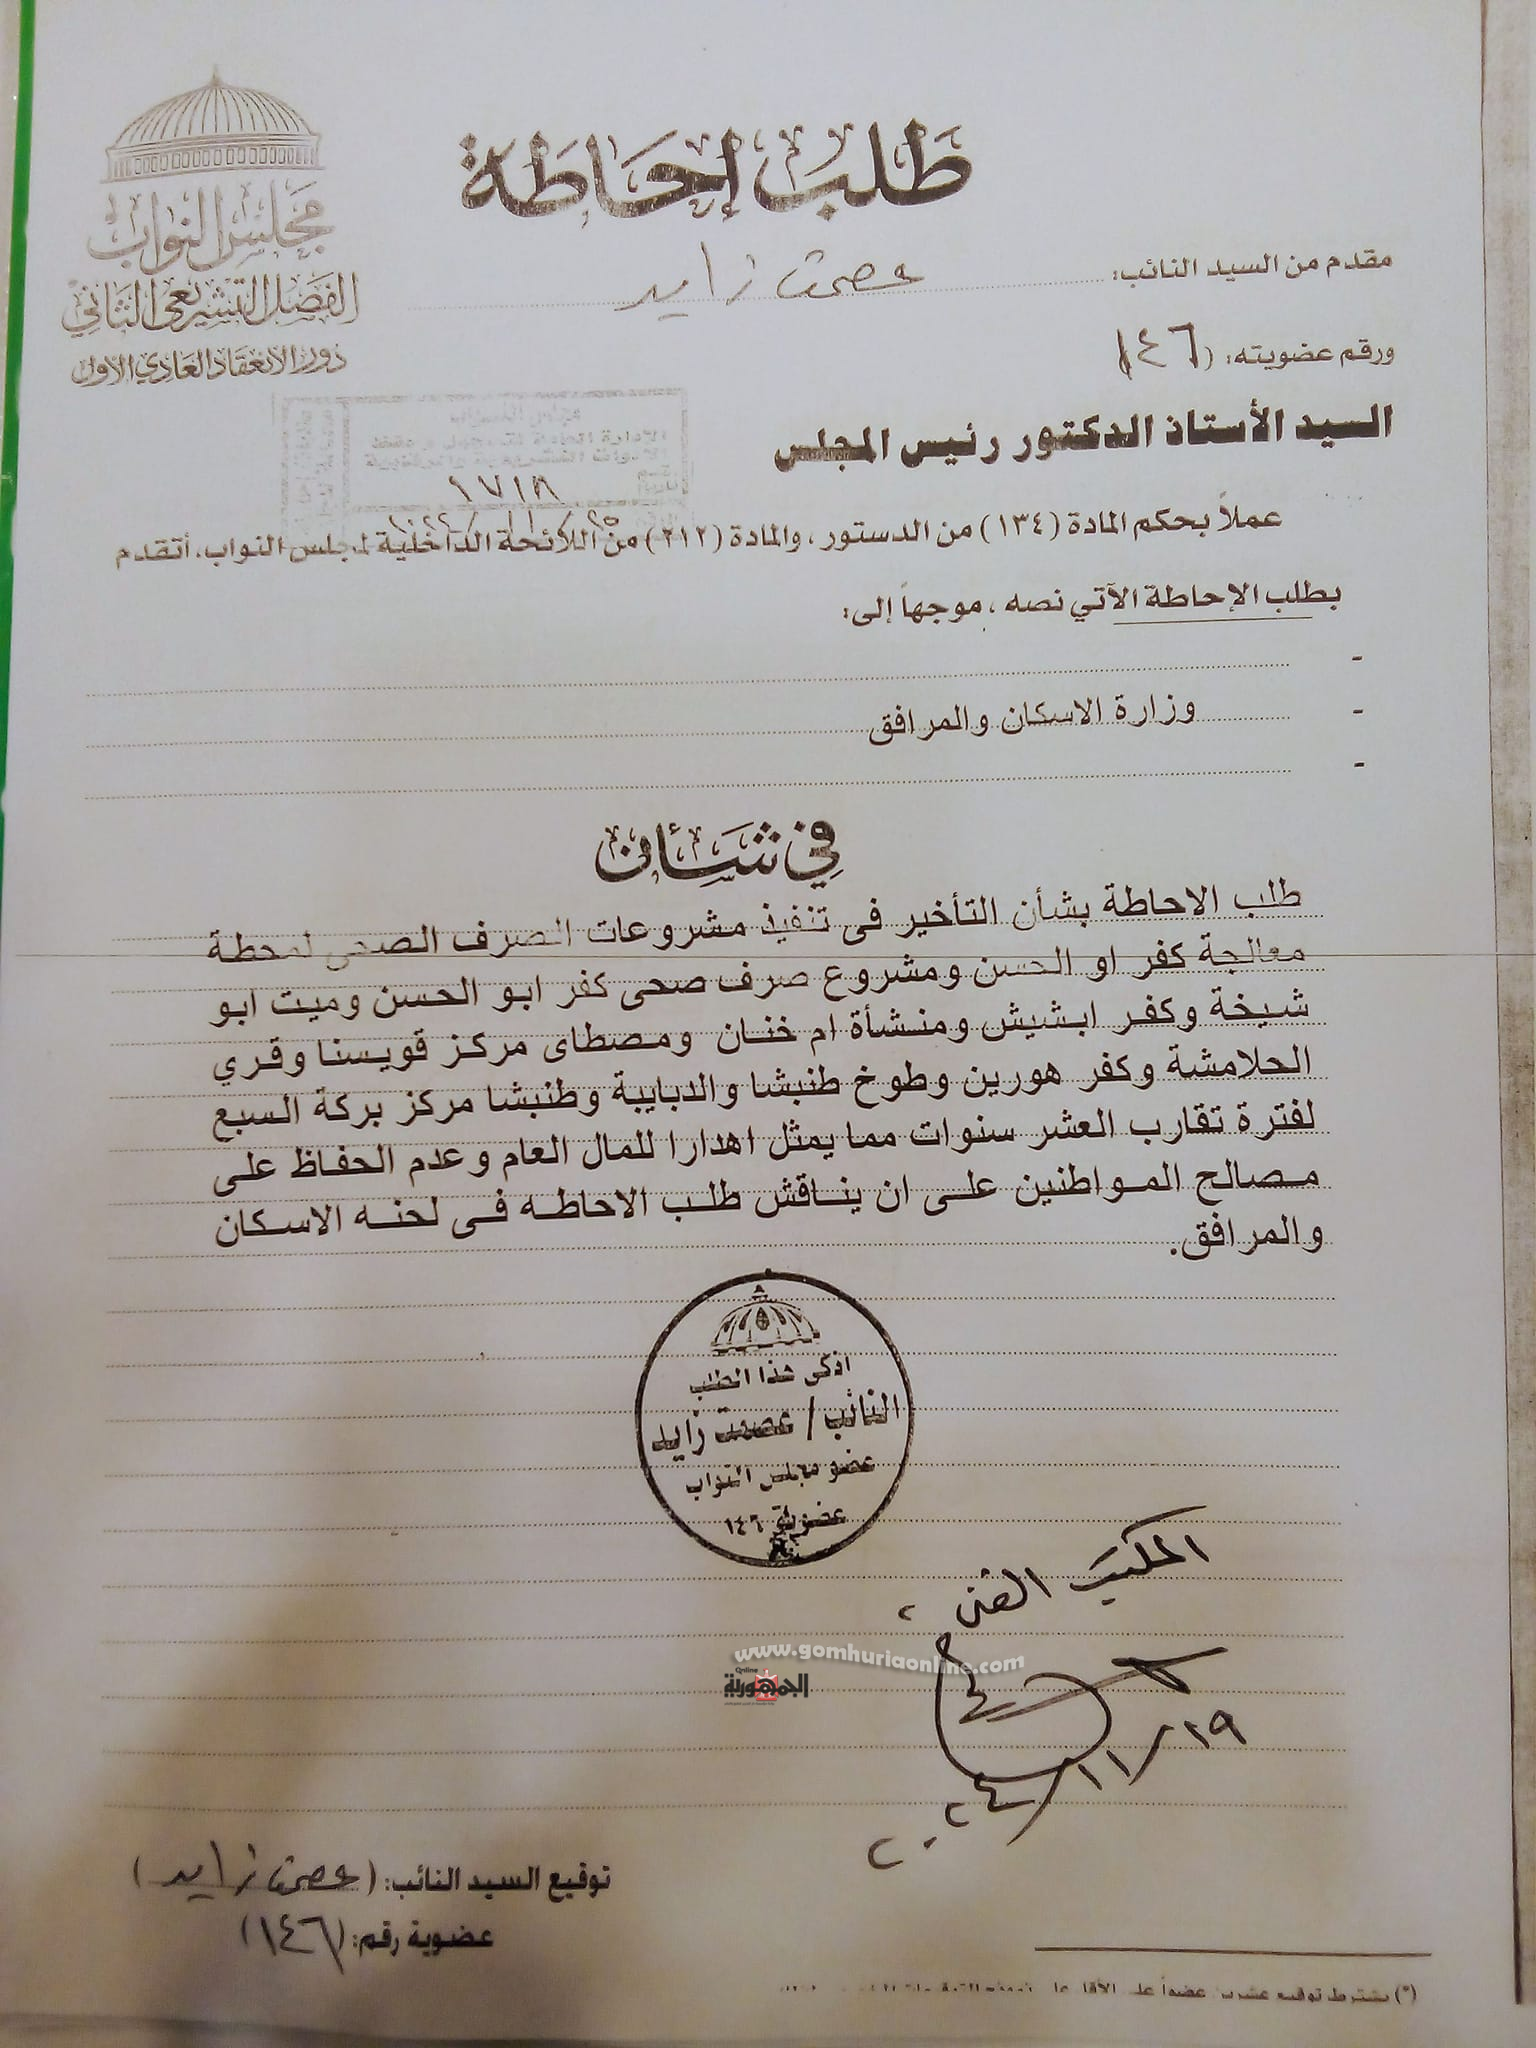 طلب إحاطة
مجلس النواب
الفصل التشريعى الثانى
دور الانعقاد العادى الاول
مقدم من السيد النائب: عصمت زايد
ورقم عضويته: (١٤٦
السيد الأستاذ الدكتور رئيس المجلس
مجلس النواب
١٧١٨
عملاً بحكم المادة (١٣٤) من الدستور، والمادة (٢١٢) من اللائحة الداخلية لمجلس النواب، أتقدم
بطلب الإحاطة الآتي نصه، موجهاً إلى:
-
- وزارة الاسكان والمرافق
-
في شأن
طلب الاحاطة بشأن التأخير فى تنفيذ مشروعات الصرف الصحى لمحطة
معالجة كفر او الحسن ومشروع صرف صحى كفر ابو الحسن وميت ابو
شيخة وكفر ابشيش ومنشأة ام خنان ومصطاى مركز قويسنا وقري
الحلامشة وكفر هورين وطوخ طنبشا والدبايبة وطنبشا مركز بركة السبع
لفترة تقارب العشر سنوات مما يمثل اهدارا للمال العام وعدم الحفاظ على
مصالح المواطنين على ان يناقش طلب الاحاطه فى لحنه الاسكان
والمرافق.
اذكى هذا الطلب
النائب/ عصمت زايد
عضو مجلس النواب
عضوية ١٤٦
المكتب الفنى
www.gomhuriaonline.com
Online
الجمهورية
١٩/١١/٢٠٢٤
توقيع السيد النائب: (عصمت زايد)
عضوية رقم: (١٤٦)
(*) يشترط توقيع عشرين عضواً على الأقل